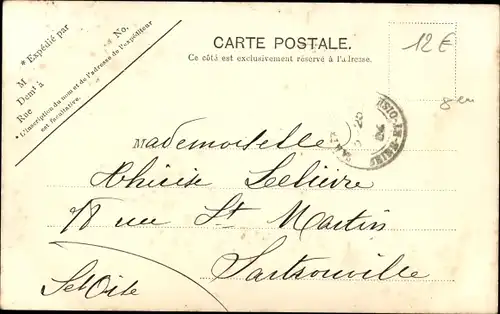 * Expédié par
M
No.
Demt à
Rue
* L'inscription du nom et de l'adresse de l'expéditeur
est facultative.
CARTE POSTALE.
Ce côté est exclusivement réservé à l'adresse.
12€
Mademoiselle
Lelièvre
18 rue St Martin
Sartrouville
Set Oise